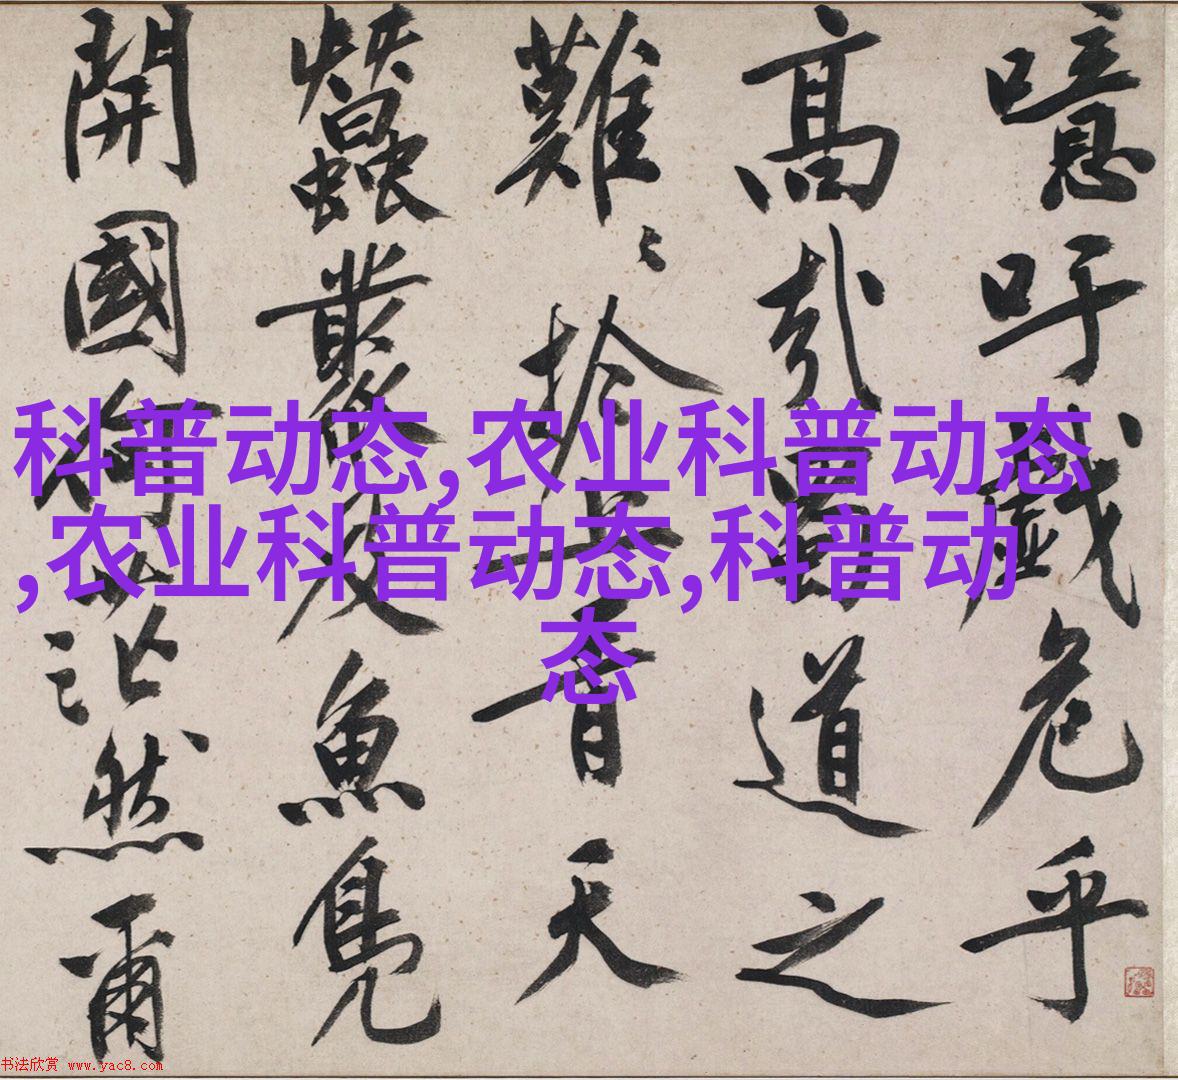 噫吁戲危乎
高哉蜀道之
難〻於上青天
蠶叢及魚鳧
開國何茫然爾
科普动态,农业科普动态
,农业科普动态,科普动
态
书法欣赏 www.yac8.com